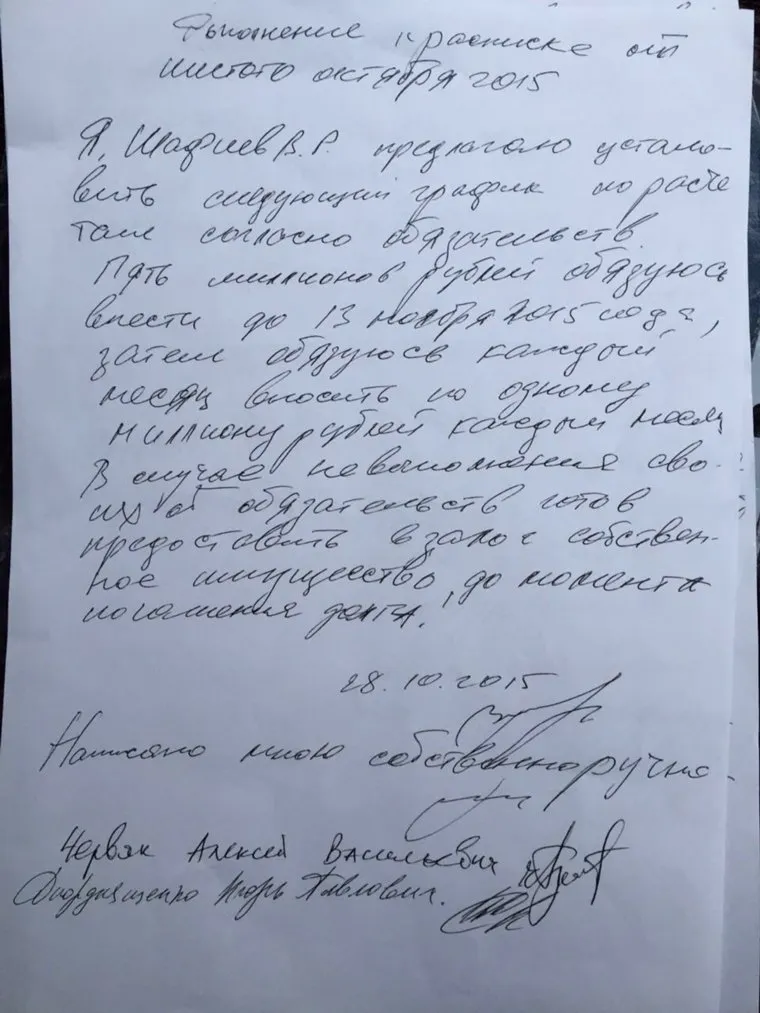 Дополнение к расписке от
шестого октября 2015
Я, Шафиев В.Р. предлагаю устано-
вить следующий график по расче
там согласно обязательств.
Пять миллионов рублей обязуюсь
внести до 13 ноября 2015 года,
затем обязуюсь каждый
месяц вносить по одному
миллиону рублей каждый месяц
В случае невыполнения сво-
их об обязательств готов
предоставить в залог собствен-
ное имущество, до момента
погашения долга.
28.10.2015
Написано мною собственноручно.
Червяк Алексей Васильевич
Игорь Павлович.